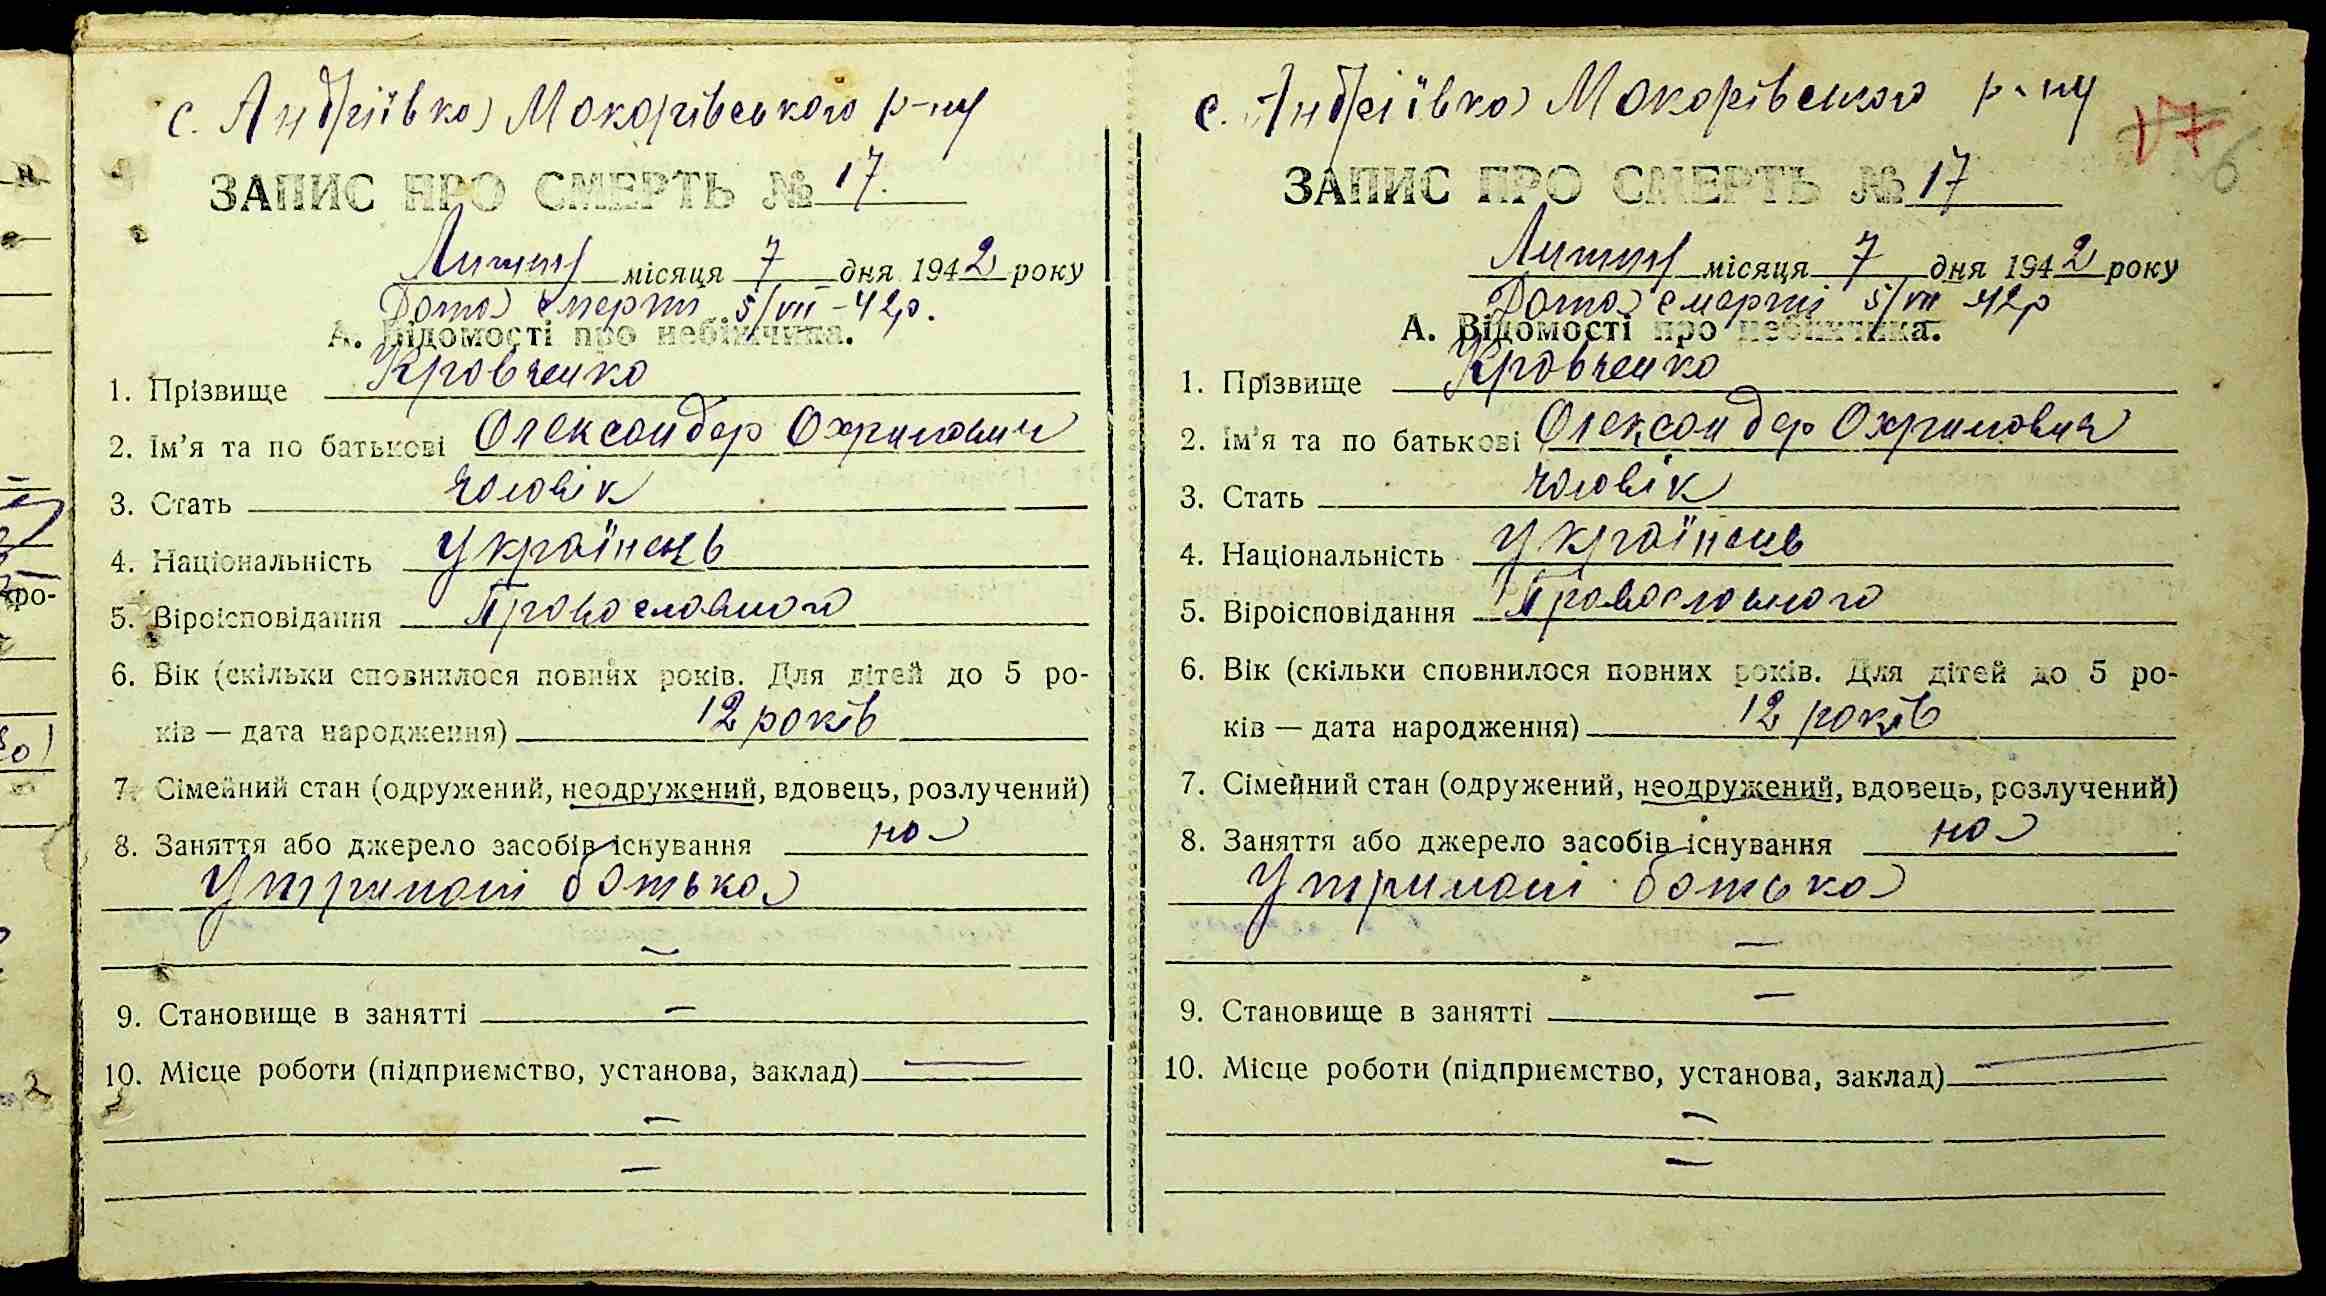 с. Андріївка Макарівського р-ну
ЗАПИС ПРО СМЕРТЬ № 17.
Липня місяця 7 дня 1942 року
Дата смерти 5/VII-42р.
А. Відомості про небіжчика.
1. Прізвище Кравченко
2. Ім’я та по батькові Олександер Охримович
3. Стать чоловік
4. Національність Українець
5. Віроісповідання Православного
6. Вік (скільки сповнилося повних років. Для дітей до 5 ро-
ків — дата народження) 12 років
7. Сімейний стан (одружений, неодружений, вдовець, розлучений)
8. Заняття або джерело засобів існування на
утримані батька
—
9. Становище в занятті —
10. Місце роботи (підприємство, установа, заклад) —
—
—
с. Андріївка Макарівського р-ну
17
6
ЗАПИС ПРО СМЕРТЬ № 17
Липня місяця 7 дня 1942 року
Дата смерті 5/VII-42р
А. Відомості про небіжчика.
1. Прізвище Кравченко
2. Ім’я та по батькові Олександер Охримович
3. Стать чоловік
4. Національність Українець
5. Віроісповідання Православного
6. Вік (скільки сповнилося повних років. Для дітей до 5 ро-
ків — дата народження) 12 років
7. Сімейний стан (одружений, неодружений, вдовець, розлучений)
8. Заняття або джерело засобів існування на
утримані батька
—
9. Становище в занятті —
10. Місце роботи (підприємство, установа, заклад) —
—
—